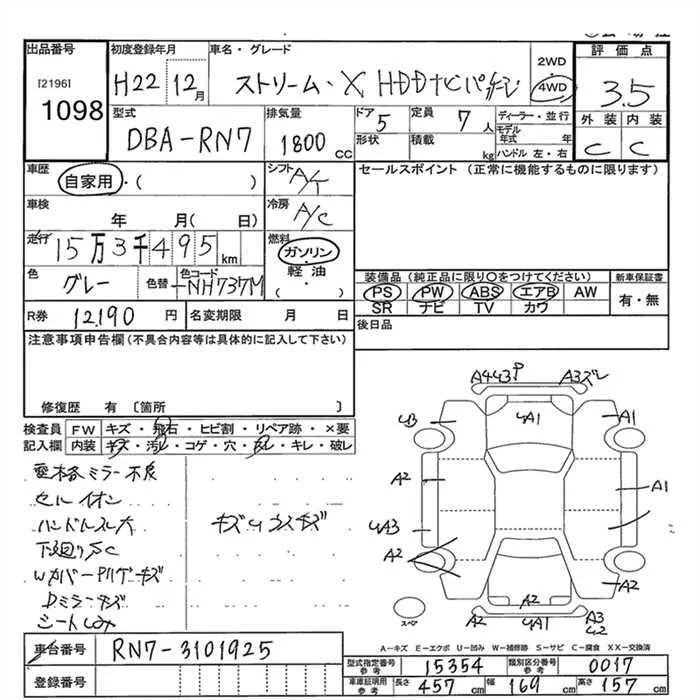 出品番号 初度登録年月 車名・グレード 2WD 評価点
[2196] H22 12月 ストリーム・X HDDナビパッケージ 4WD 3.5
1098 型式 排気量 ドア 定員 ディーラー・並行 外装 内装
DBA-RN7 1800cc 5 7人 モデル年式 年 C C
形状 積載 kg ハンドル 左・右
車歴 自家用・( ) シフト A/T セールスポイント (正常に機能するものに限ります)
車検 年 月(日) 冷房 A/C
走行 15万3千495km 燃料 ガソリン・軽油・( )
色 グレー 色替 色コード NH737M 装備品(純正品に限り○をつけてください) 新車保証書
PS PW ABS エアB AW 有・無
SR ナビ TV カワ
R券 12,190円 名変期限 月 日 後日品
注意事項申告欄(不具合内容等は具体的に記入して下さい)
修復歴 有 〔箇所 〕
検査員 FW キズ・飛石・ヒビ割・リペア跡・×要
記入欄 内装 キズ・汚レ・コゲ・穴・スレ・キレ・破レ
ミラー不良
セル イオン
ハンドルスレ大 キズ
下廻りSC
Wカバー キズ
Dミラーキズ
シート
A4 U3 P A3ズレ
UA1
A1
A2 A1
UA3
A2 A2
A2
UA1 A3
U2
スペア
A-キズ E-エクボ U-凹み W-補修跡 S-サビ C-腐食 XX-交換済
車台番号 RN7-3101925
登録番号
型式指定番号 参考 15354 類別区分番号 参考 0017
車庫証明用 参考 長さ 457cm 幅 169cm 高さ 157cm